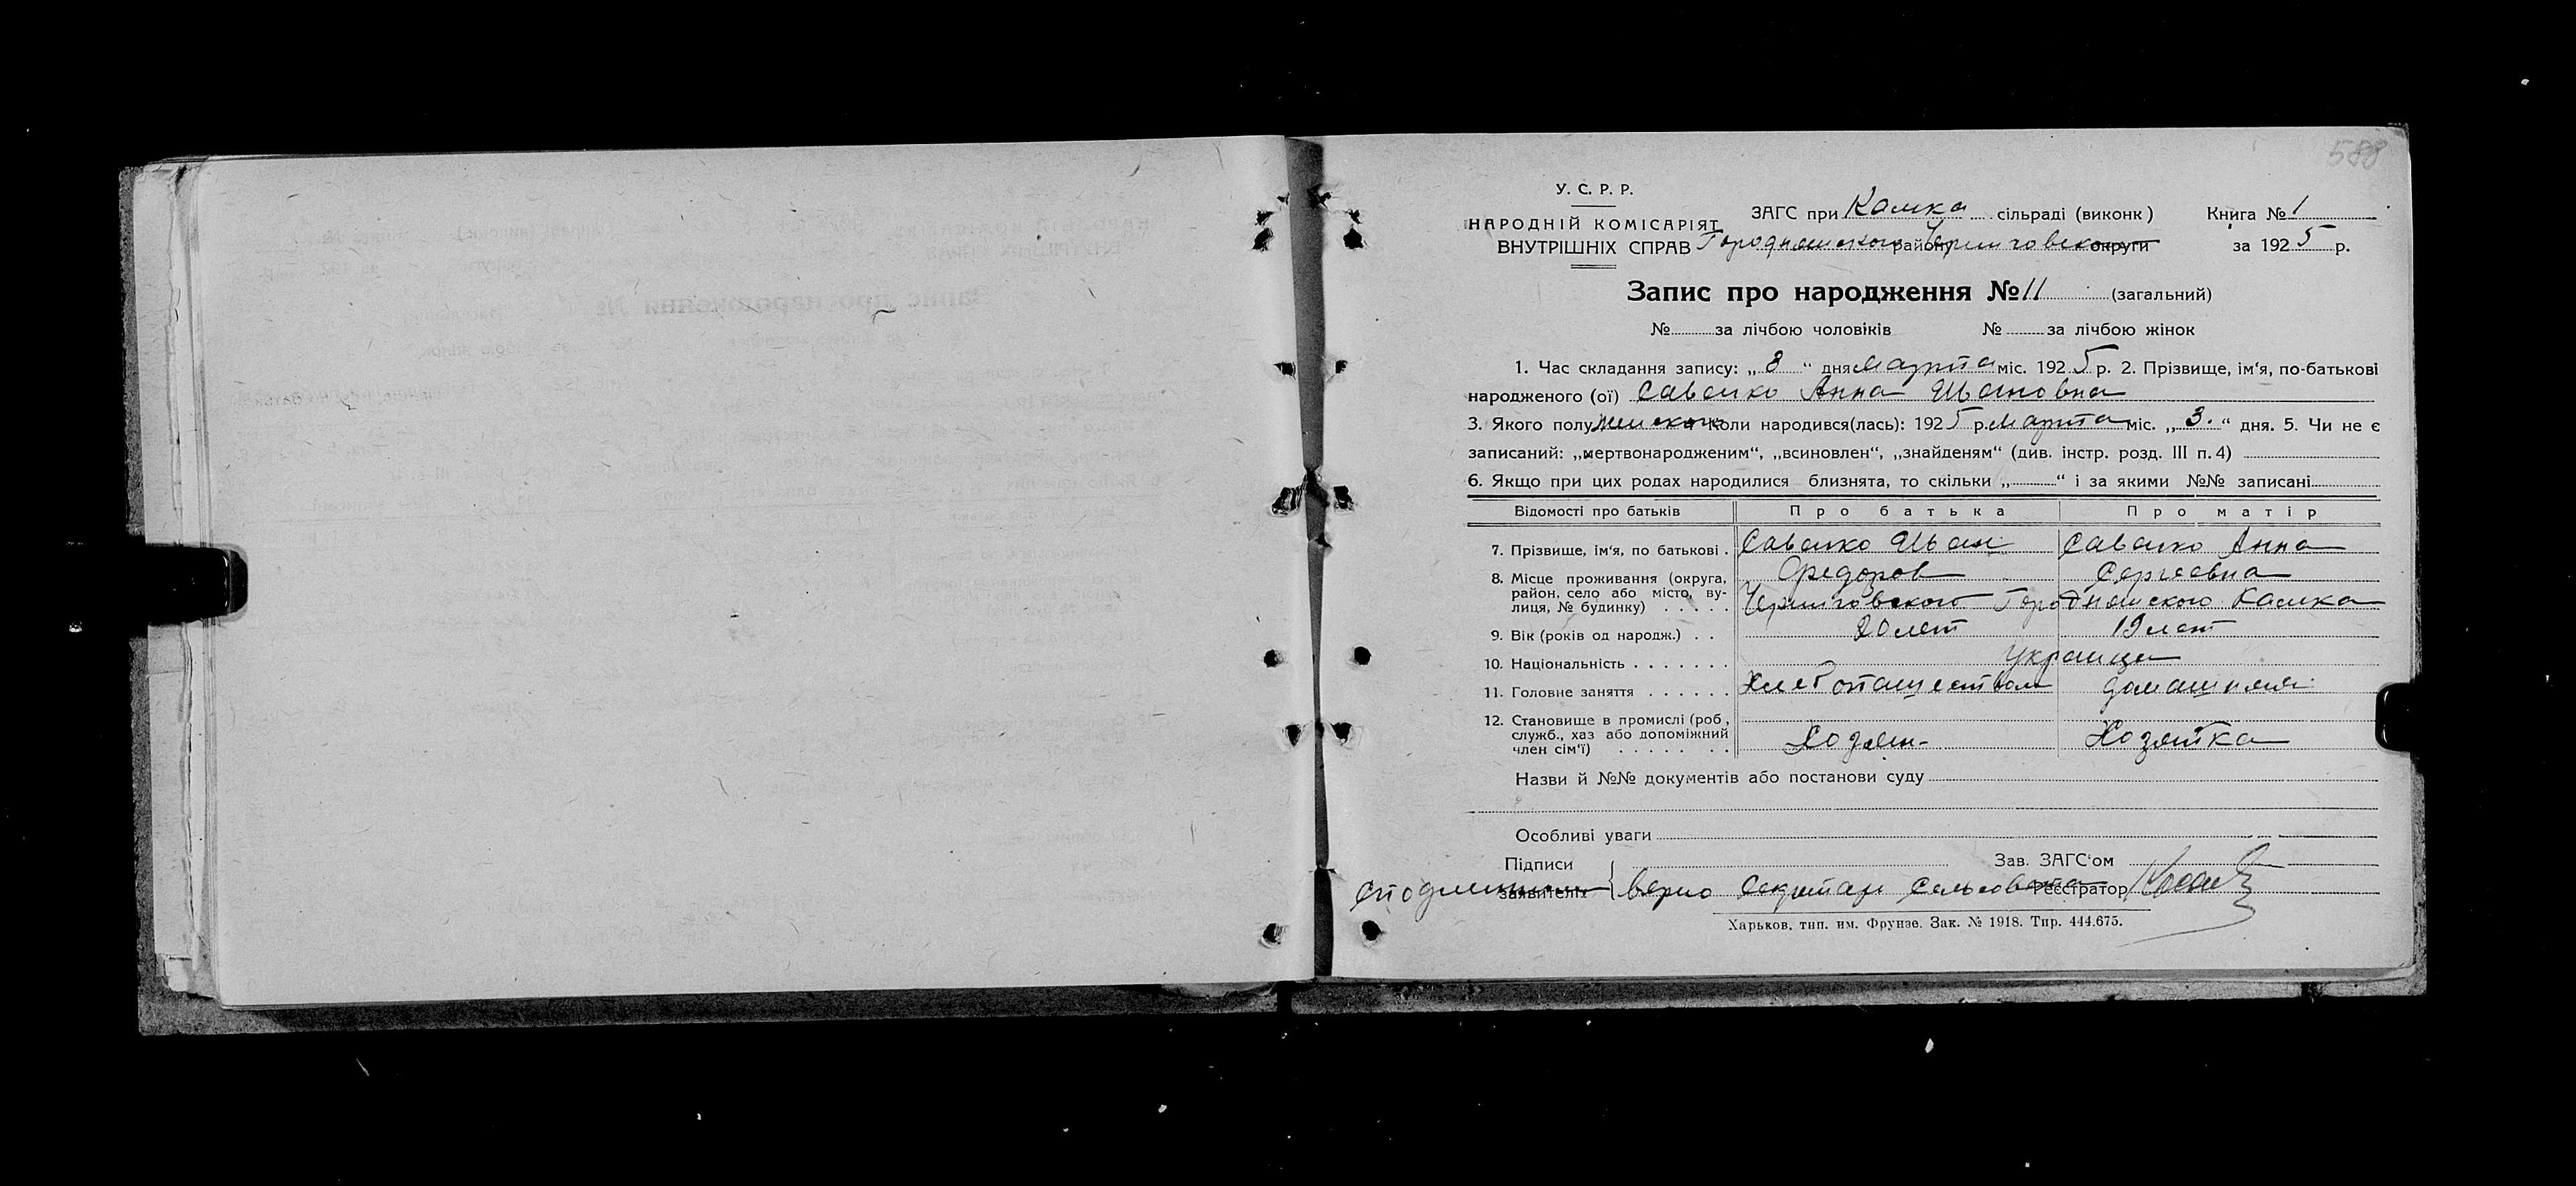 588
У. С. Р. Р.
НАРОДНІЙ КОМІСАРІЯТ
ВНУТРІШНІХ СПРАВ
ЗАГС при Камка сільраді (виконк) Книга № 1
Городнянского району Черниговской округи за 1925 р.
Запис про народження № 11 (загальний)
№ за лічбою чоловіків № за лічбою жінок
1. Час складання запису: „ 8 “ дня марта міс. 1925 р. 2. Прізвище, ім‘я, по-батькові
народженого (ої) Савенко Анна Ивановна
3. Якого полу женского Коли народився(лась): 1925 р. марта міс. „ 3. “ дня. 5. Чи не є
записаний: „мертвонародженим“, „всиновлен“, „знайденям“ (див. інстр. розд. III п. 4)
6. Якщо при цих родах народилися близнята, то скільки „ “ і за якими №№ записані
Відомості про батьків Про батька Про матір
7. Прізвище, ім‘я, по батькові . Савенко Иван Савенко Анна
Федоров Сергеевна
8. Місце проживання (округа, район, село або місто, вулиця, № будинку) . . . . . Черниговского Городнянского Камка
9. Вік (років од народж.) . . 20 лет 19 лет
10. Національність . . . . . . . украинцы
11. Головне заняття . . . . . . Хлебопашеством домашняя
12. Становище в промислі (роб., служб., хаз або допоміжний член сім‘ї) . . . . . . . Хозяин Хозяйка
Назви й №№ документів або постанови суду
Особливі уваги
Підписи Зав. ЗАГС‘ом
заявителів
С подлинным верно Секретарь Сельсовета Реєстратор
Харьков. тип. им. Фрунзе. Зак. № 1918. Тир. 444.675.